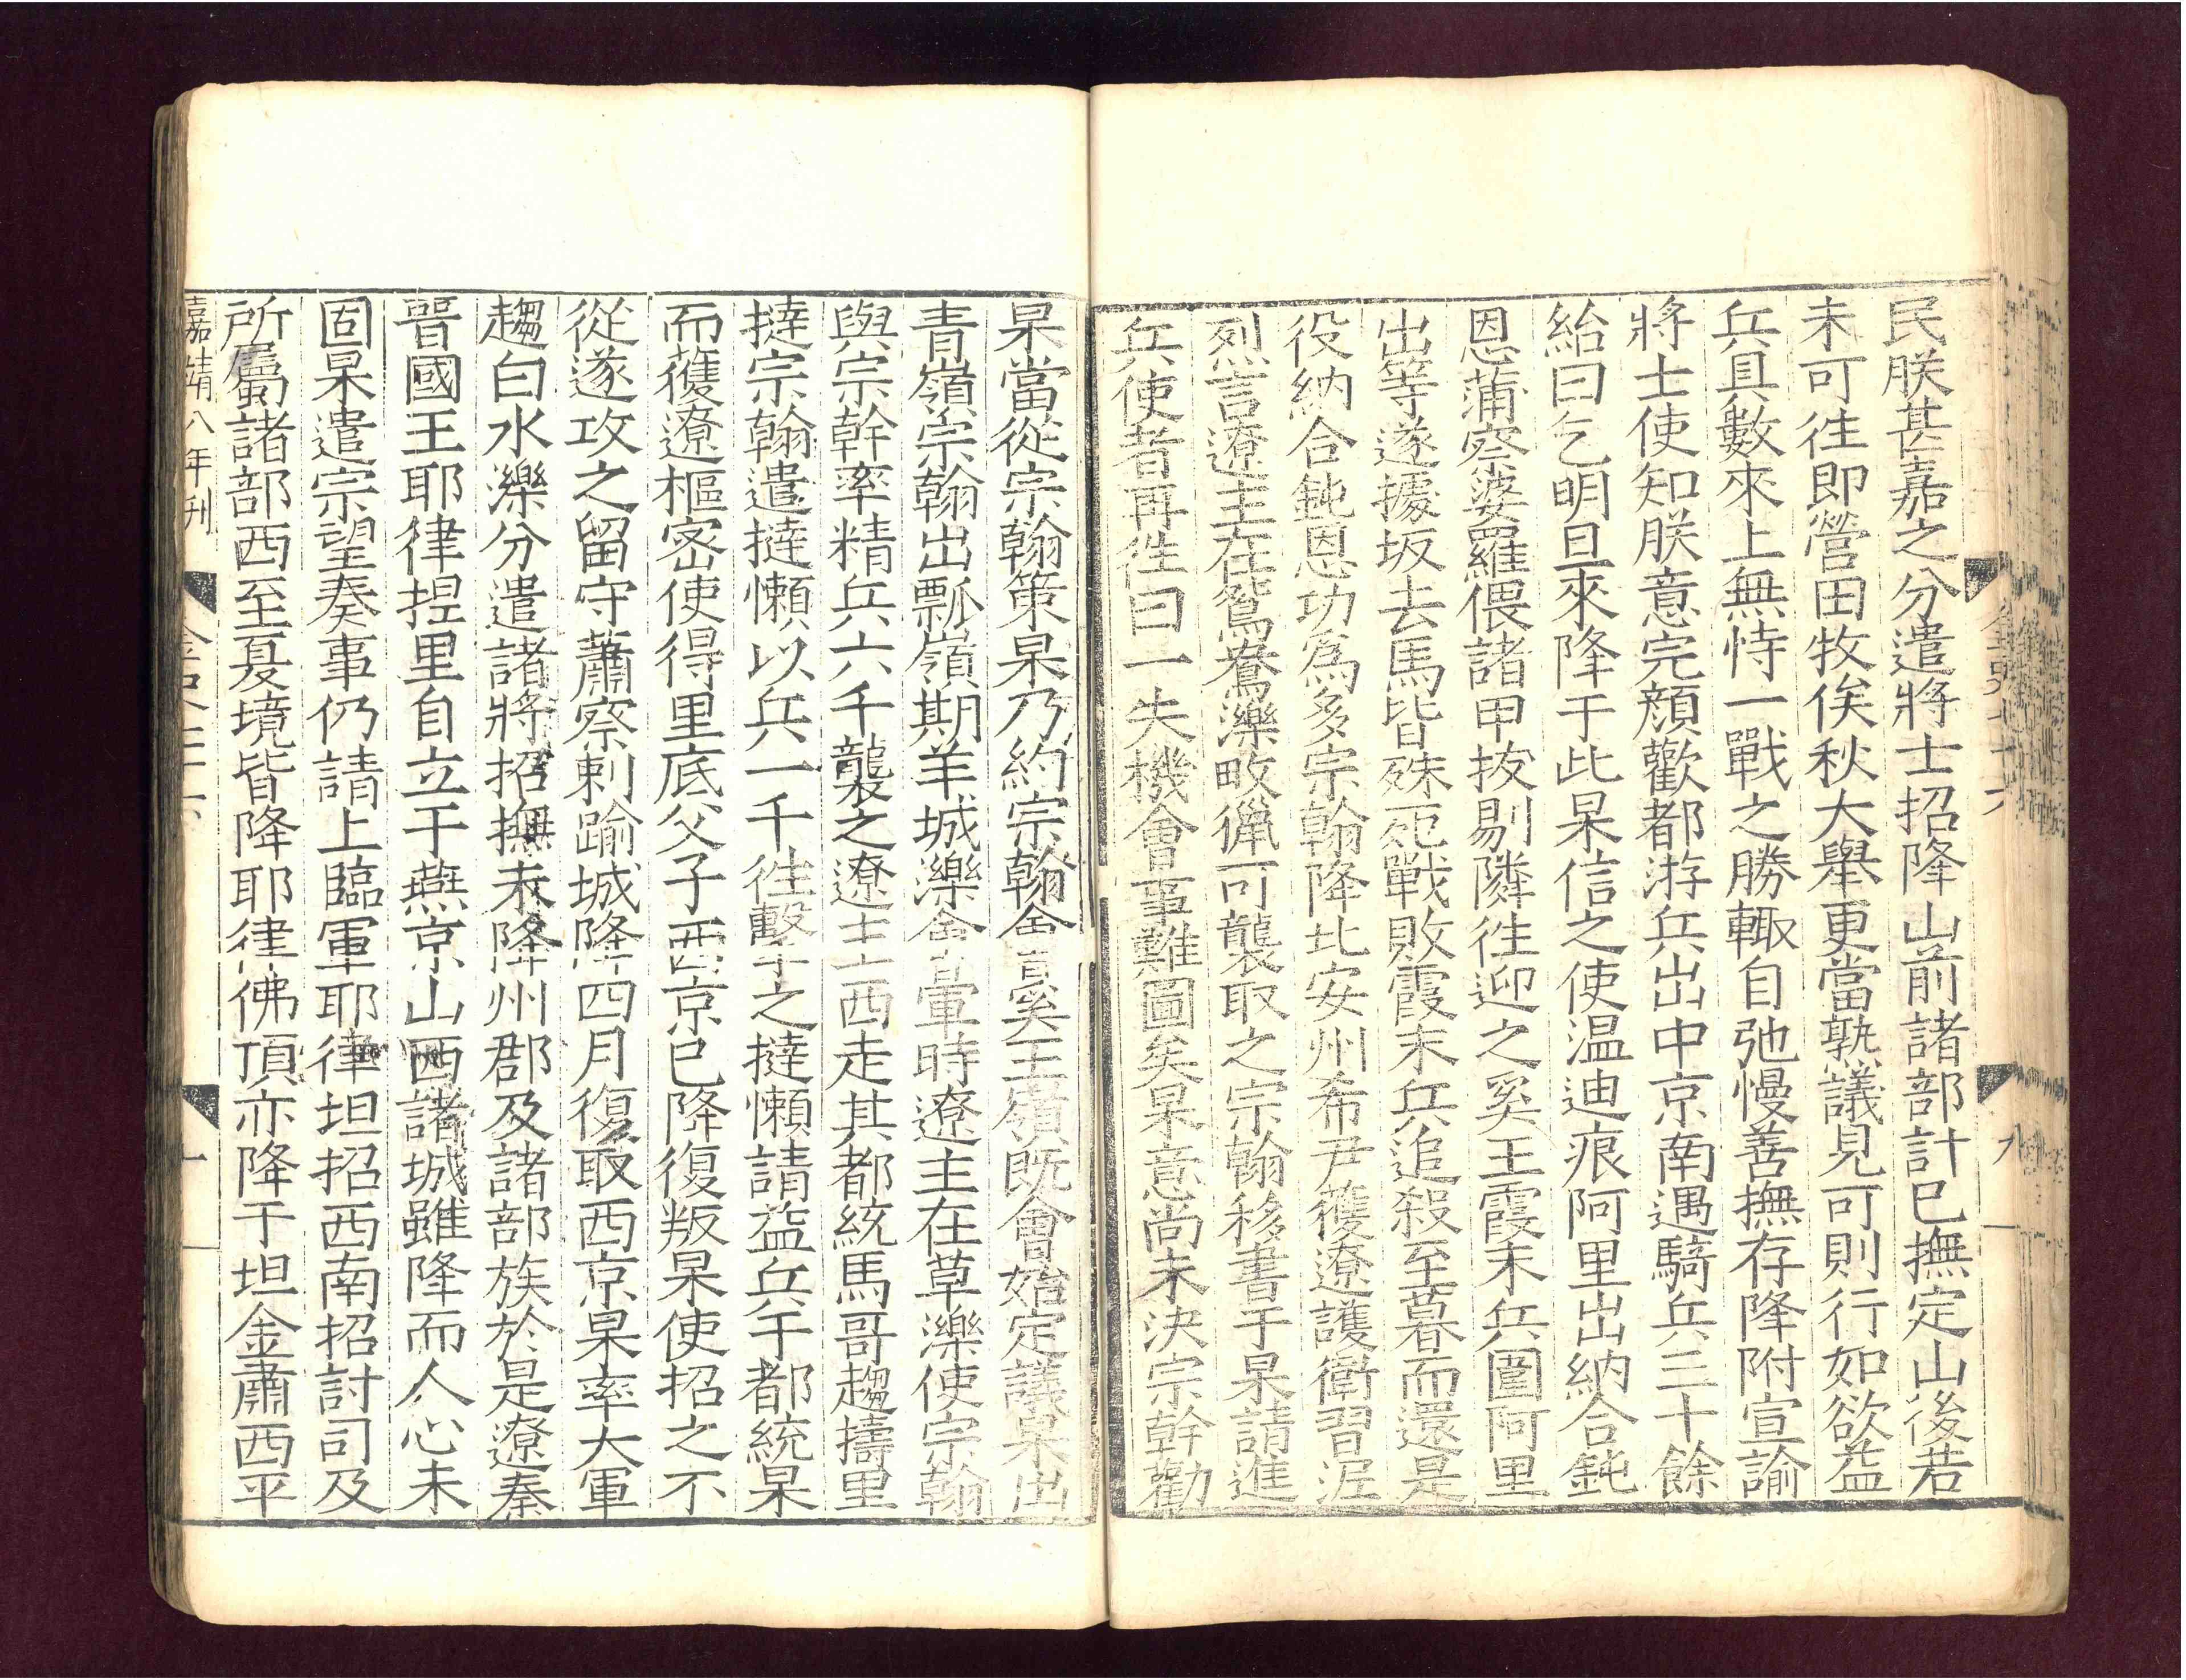 民朕甚嘉之分遣將士招降山前諸部計已撫定山後若
未可徃即營田牧俟秋大舉更當熟議見可則行如欲益
兵具數來上無恃一戰之勝輙自弛慢善撫存降附宣諭
將士使知朕意完顔歡都游兵出中京南遇騎兵三十餘
紿曰乞明旦來降于此杲信之使温迪痕阿里出納合鈍
恩蒲察婆羅偎諸甲拔剔隣徃迎之奚王霞末兵圍阿里
出等遂據坂去馬皆殊死戰敗霞末兵追殺至暮而還是
役納合鈍恩功爲多宗翰降北安州希尹獲遼護衛習泥
烈言遼主在鴛鴦濼畋獵可襲取之宗翰移書于杲請進
兵使者再徃曰一失機會事難圖矣杲意尚未决宗幹勸
杲當從宗翰策杲乃約宗翰會奚王嶺既會始定議杲出
青嶺宗翰出瓢嶺期羊城濼會軍時遼主在草濼使宗翰
與宗幹率精兵六千襲之遼主西走其都統馬哥趨擣里
撻宗翰遣撻懶以兵一千徃擊之撻懶請益兵于都統杲
而獲遼樞密使得里底父子西京已降復叛杲使招之不
從遂攻之留守蕭察剌踰城降四月復取西京杲率大軍
趨白水濼分遣諸將招撫未降州郡及諸部族於是遼秦
晉國王耶律捏里自立于燕京山西諸城雖降而人心未
固杲遣宗望奏事仍請上臨軍耶律坦招西南招討司及
所屬諸部西至夏境皆降耶律佛頂亦降于坦金肅西平
嘉靖八年刊